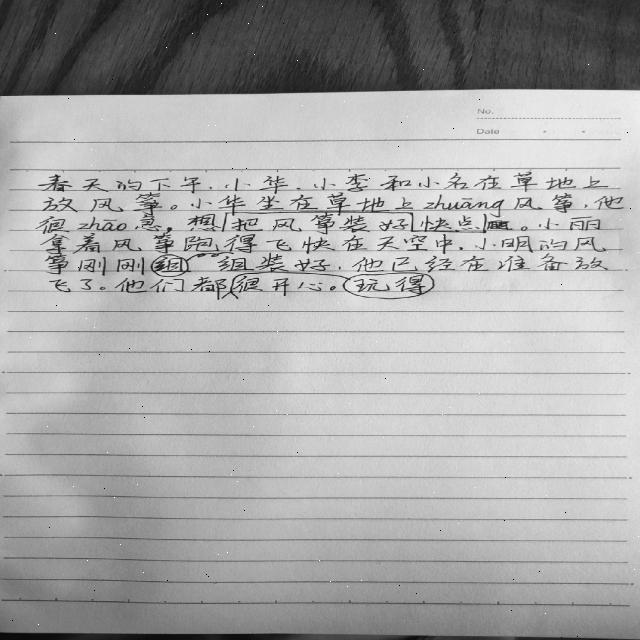 No.
Date
春天的下午,小华、小李和小名在草地上
放风筝。小华坐在草地上zhuāng风筝,他
很zhāo急,想把风筝装好快点。小丽
拿着风筝跑得飞快在天空中,小明的风
筝刚刚组 组装好,他已经在准备放
飞了。他们都很开心。玩得